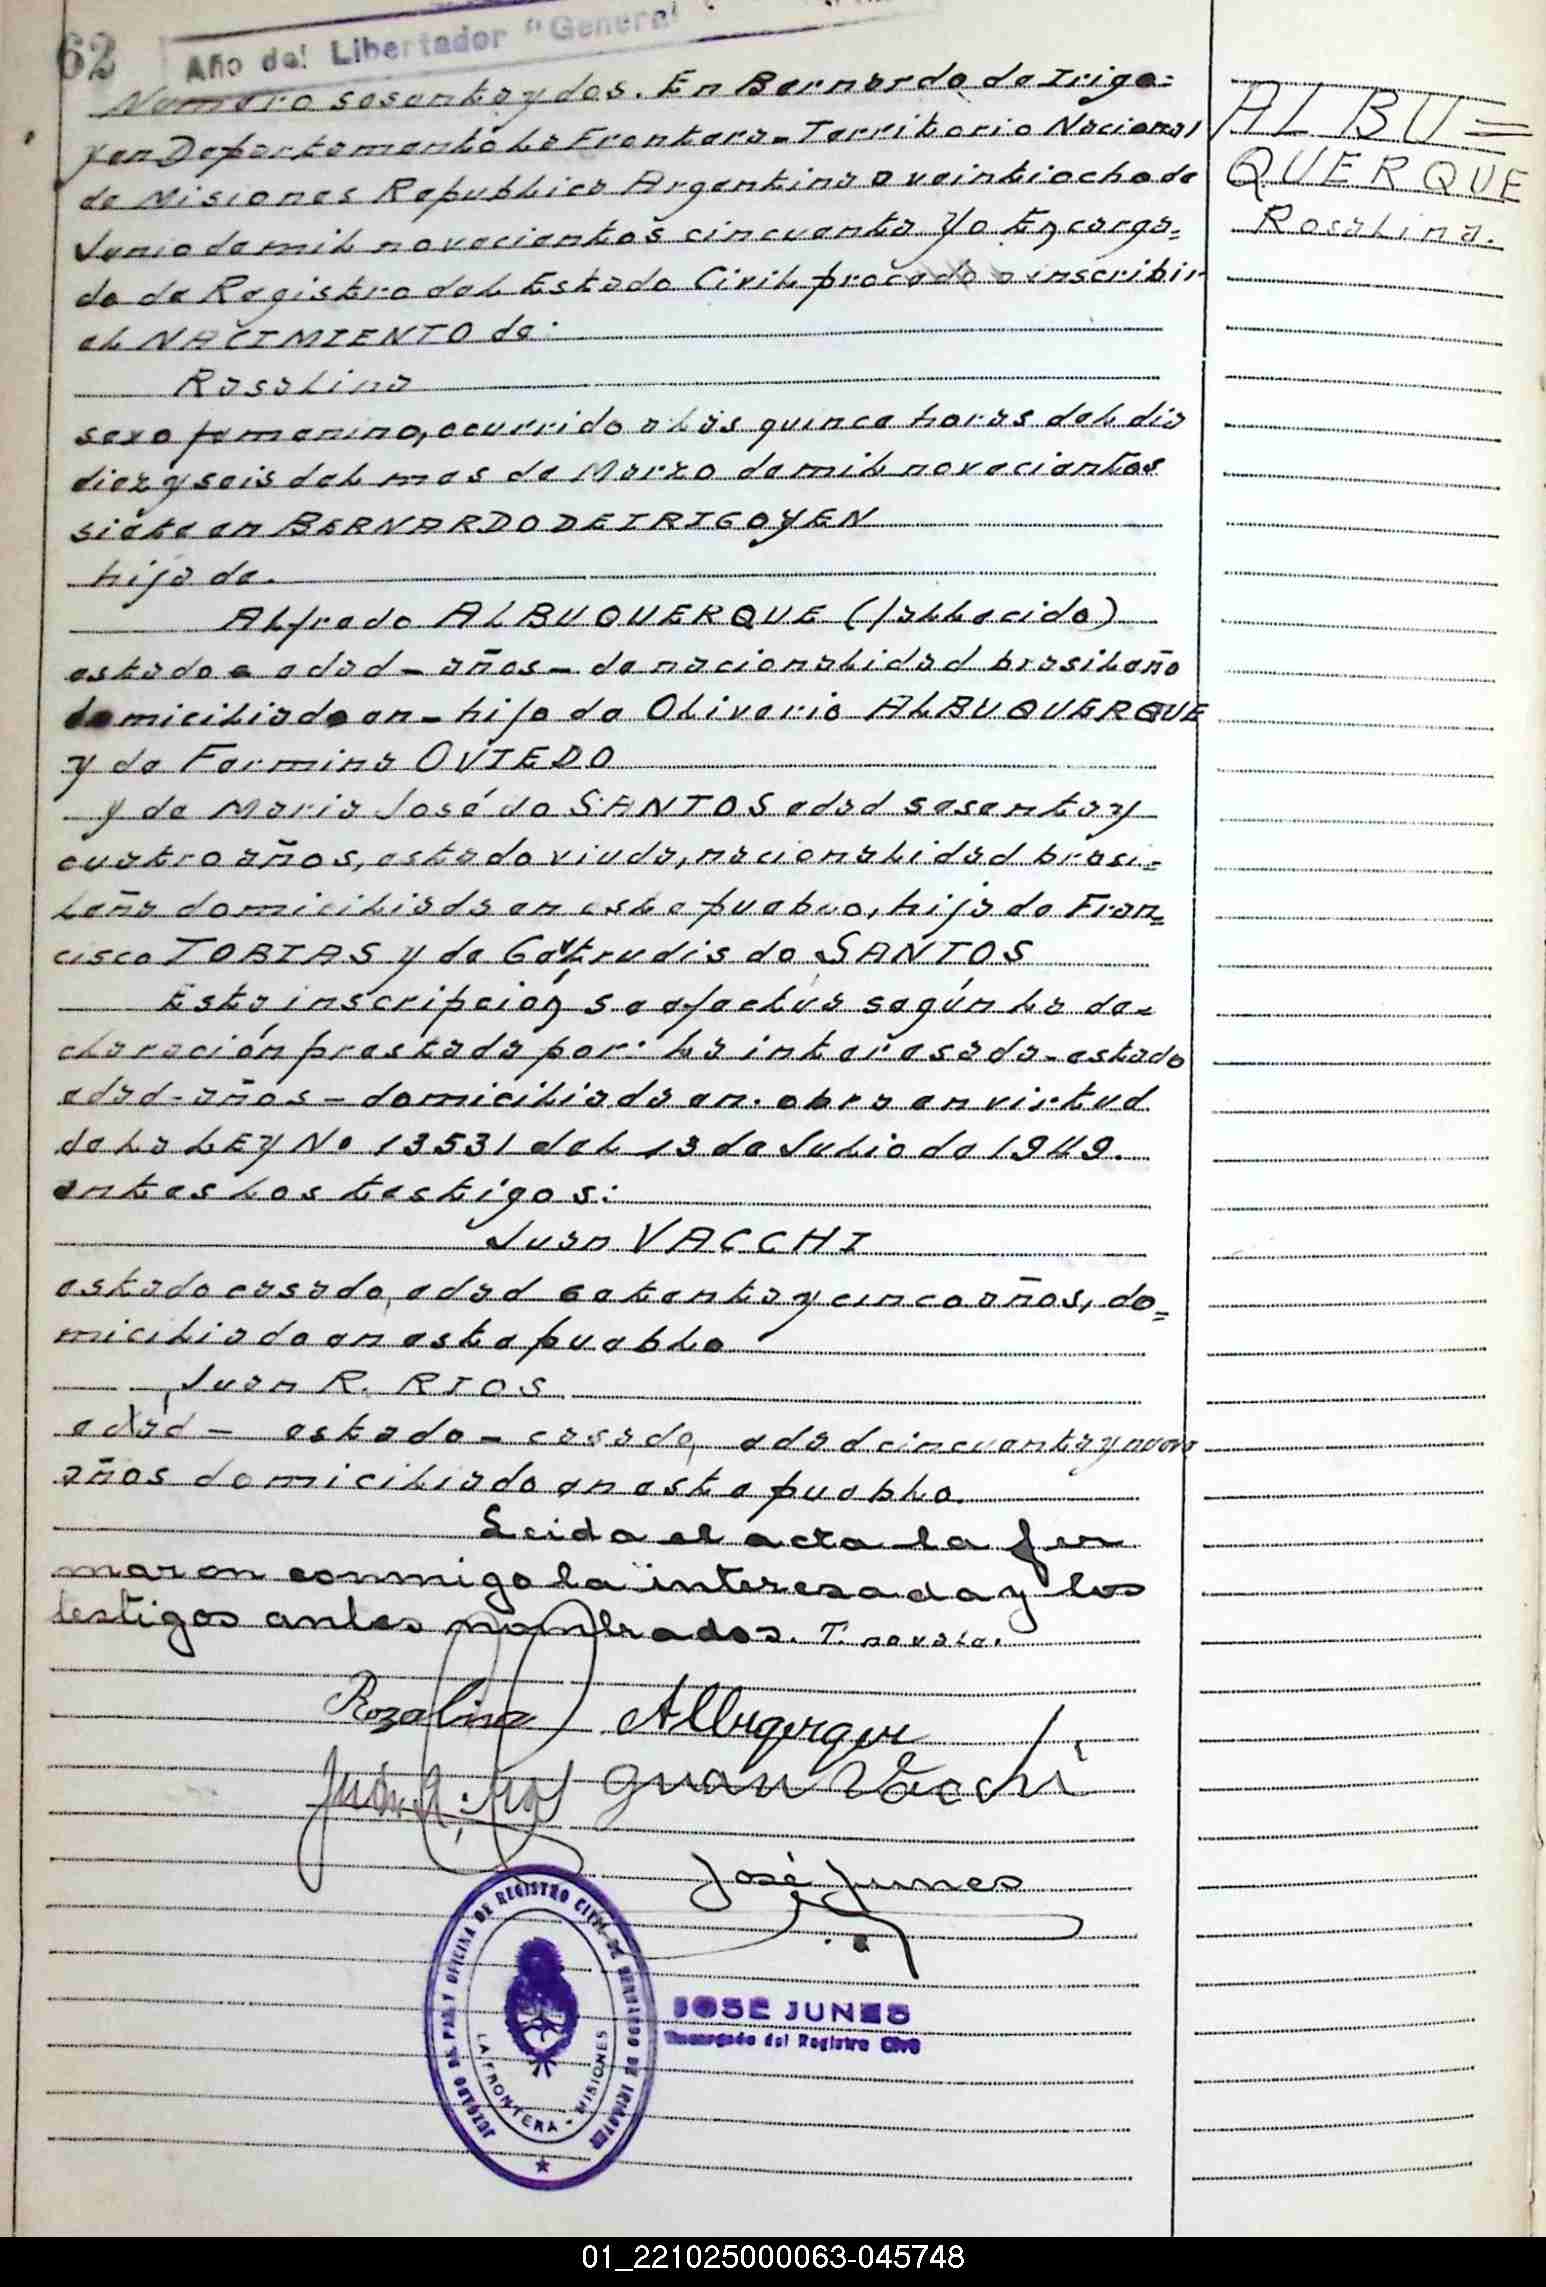 62
Año del Libertador "General
Numero sesenta y dos. En Bernardo de Irigo=
yen Departamento La Frontera - Territorio Nacional
de Misiones Republica Argentina a veintiocho de
Junio de mil novecientos cincuenta Yo Encarga=
do de Registro del Estado Civil procedo a inscribir
el NACIMIENTO de:
Rosalina
sexo femenino, ocurrido a las quince horas del dia
diez y seis del mes de Marzo de mil novecientos
siete en BERNARDO DE IRIGOYEN
hija de.
Alfredo ALBUQUERQUE (fallecido)
estado - edad - años - de nacionalidad brasileño
domiciliado en - hijo de Oliverio ALBUQUERQUE
y de Fermina OVIEDO
y de Maria José do SANTOS edad sesenta y
cuatro años, estado viuda, nacionalidad brasi=
leña domiciliada en este pueblo, hija de Fran=
cisco TOBIAS y de Gertrudis do SANTOS
Esta inscripción se efectua según la de=
claración prestada por: la interesada - estado
edad - años - domiciliada en. obra en virtud
de la LEY No 13531 del 13 de Julio de 1949.
antes los testigos:
Juan VACCHI
estado casado, edad setenta y cinco años, do=
miciliado en este pueblo
Juan R. RIOS
edad - estado - casado, edad cincuenta y nueve
años domiciliado en este pueblo.
Leida el acta la fir
maron conmigo la interesada y los
testigos antes nombrados. T. no vale.
Rozalina Alburquerque
Juan R. Rios Guan Vacchi
José Junes
JUZGADO DE PAZ Y OFICINA DE REGISTRO CIVIL DE BERNARDO DE IRIGOYEN
LA FRONTERA - MISIONES
JOSE JUNES
Encargado del Registro Civil
ALBU=
QUERQUE
Rosalina.
01_221025000063-045748